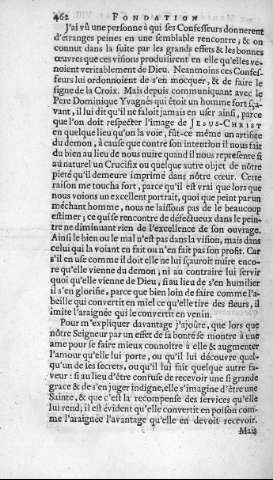 462 FONDATION
J'ai vû une personne à qui ses Confesseurs donnerent
d'étranges peines en une semblable rencontre, & on
connut dans la suite par les grands effets & les bonnes
œuvres que ces visions produisirent en elle qu'elles ve-
noient veritablement de Dieu. Neanmoins ces Confes-
seurs lui ordonnoient de s'en mocquer, & de faire le
signe de la Croix. Mais depuis communiquant avec le
Pere Dominique Yvagnés qui étoit un homme fort sça-
vant, il lui dit qu'il ne faloit jamais en user ainsi, parce
que l'on doit respecter l'image de JESUS-CHRIST
en quelque lieu qu'on la voie, fût-ce même un artifice
du demon, à cause que contre son intention il nous fait
du bien au lieu de nous nuire quand il nous represente si
au naturel un Crucifix ou quelque autre objet de nôtre
pieté qu'il demeure imprimé dans nôtre cœur. Cette
raison me toucha fort, parce qu'il est vrai que lors que
nous voions un excellent portrait, quoi que peint par un
méchant homme, nous ne laissons pas de le beaucoup
estimer; ce qui se rencontre de défectueux dans le pein-
tre ne diminuant rien de l'excellence de son ouvrage.
Ainsi le bien ou le mal n'est pas dans la vision, mais dans
celui qui la voiant en fait ou n'en fait pas son profit. Car
s'il en use comme il doit elle ne lui sçauroit nuire enco-
re qu'elle vienne du demon; ni au contraire lui servir
quoi qu'elle vienne de Dieu, si au lieu de s'en humilier
il s'en glorifie, parce que bien loin de faire comme l'a-
beille qui convertit en miel ce qu'elle tire des fleurs, il
imite l'araignée qui le convertit en venin.
Pour m'expliquer davantage j'ajoûte, que lors que
nôtre Seigneur par un effet de sa bonté se montre à une
ame pour se faire mieux connoître à elle & augmenter
l'amour qu'elle lui porte, ou qu'il lui découvre quel-
qu'un de ses secrets, ou qu'il lui fait quelque autre fa-
veur: si au lieu d'être confuse de recevoir une si grande
grace & de s'en juger indigne, elle s'imagine d'être une
Sainte, & que c'est la recompense des services qu'elle
lui rend, il est évident qu'elle convertit en poison com-
me l'araignée l'avantage qu'elle en devoit recevoir.
Mais